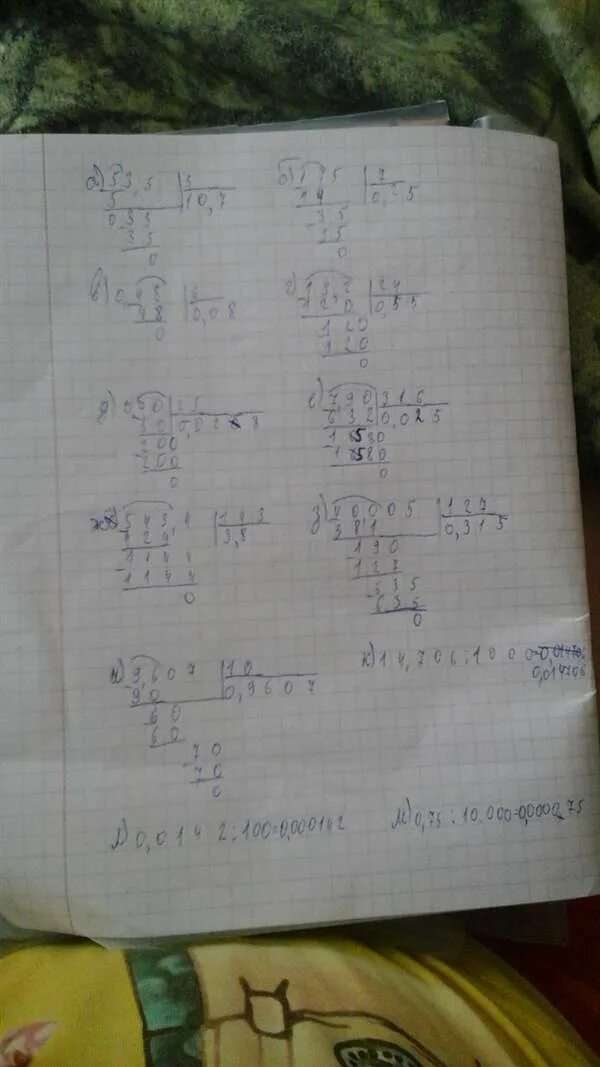 а) 53,5 | 5
5 | 10,7
035
35
0
б) 1,75 | 7
14 | 0,25
35
35
0
в) 0,48 | 6
48 | 0,08
0
г) 13,2 | 24
120 | 0,55
120
120
0
д) 0,50 | 25
50 | 0,028
200
200
0
е) 7,90 | 316
632 | 0,025
1580
1580
0
ж) 543,4 | 143
429 | 3,8
1144
1144
0
з) 40,005 | 127
381 | 0,315
190
127
635
635
0
и) 9,607 | 10
90 | 0,9607
60
60
70
70
0
к) 14,706 : 1000=
0,014706
л) 0,0142:100=0,000142
м) 0,75:10.000=0,000075